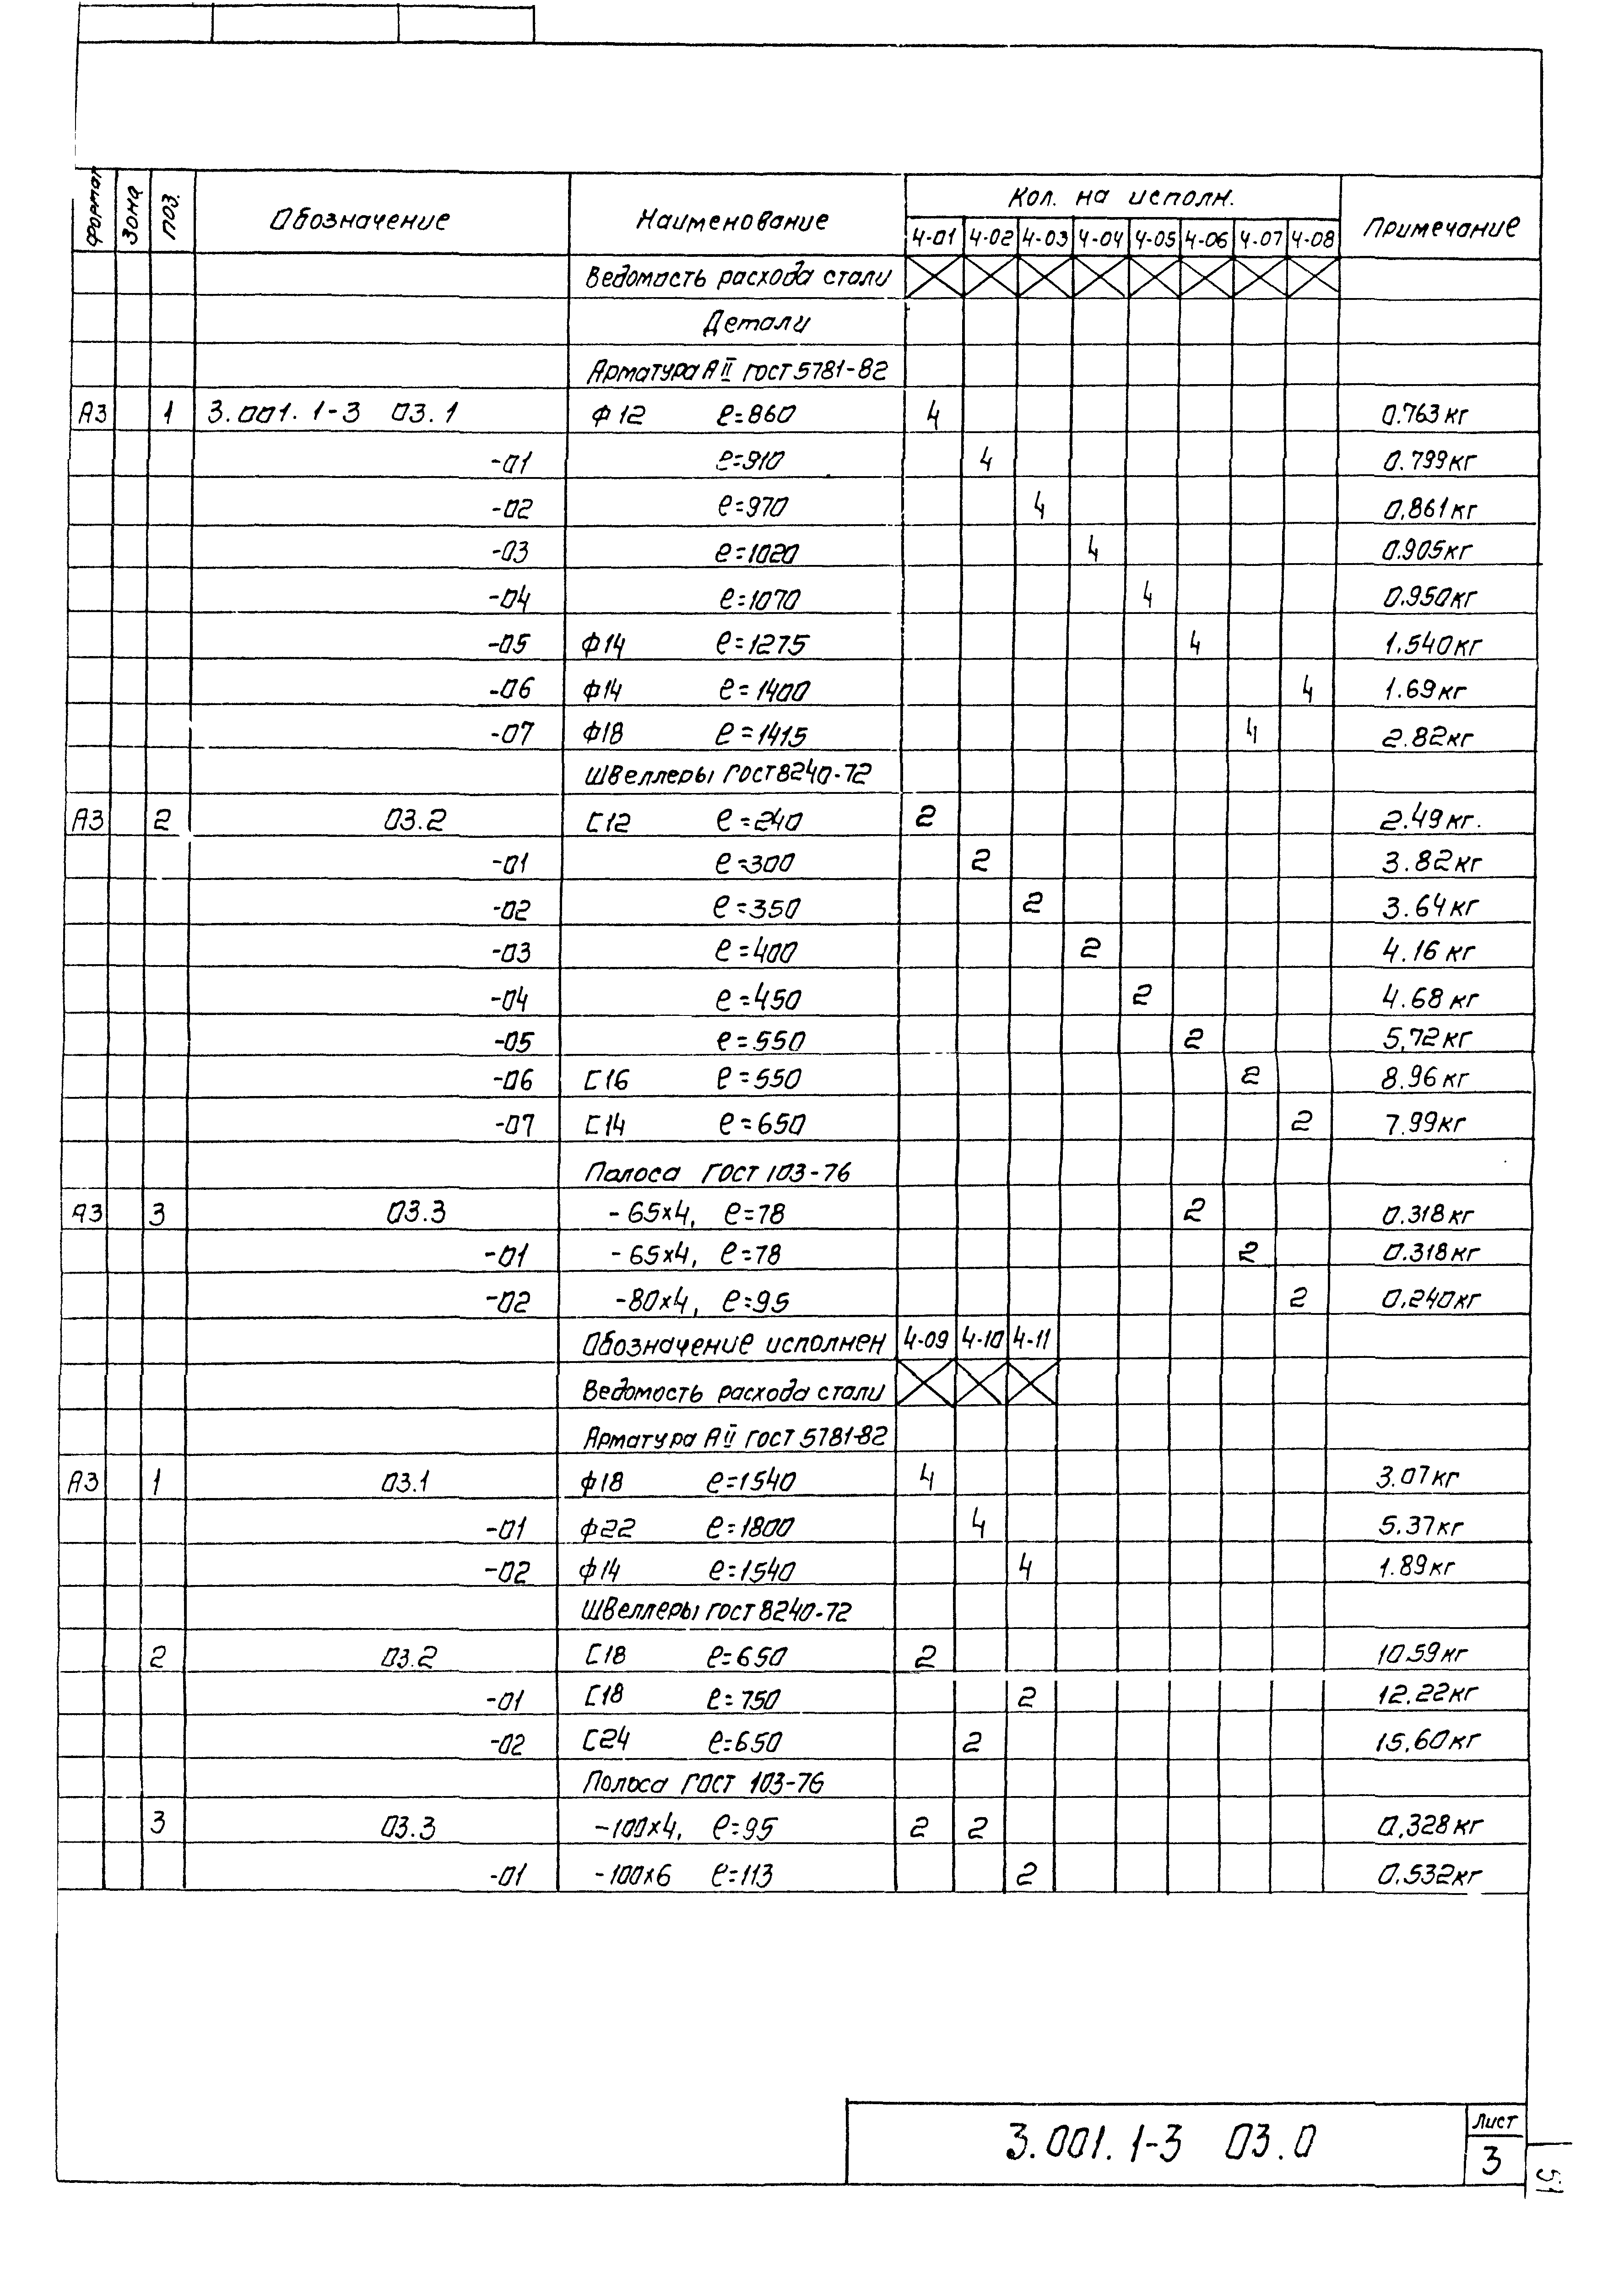 Формат Зона Поз. Обозначение Наименование Кол. на исполн. Примечание
4-01 4-02 4-03 4-04 4-05 4-06 4-07 4-08
Ведомость расхода стали
Детали
Арматура АII ГОСТ 5781-82
А3 1 3.001.1-3 03.1 Ф12 ℓ=860 4 0.763кг
-01 ℓ=910 4 0.799кг
-02 ℓ=970 4 0,861кг
-03 ℓ=1020 4 0.905кг
-04 ℓ=1070 4 0.950кг
-05 Ф14 ℓ=1275 4 1.540кг
-06 Ф14 ℓ=1400 4 1.69кг
-07 Ф18 ℓ=1415 4 2.82кг
Швеллеры ГОСТ 8240-72
А3 2 03.2 С12 ℓ=240 2 2.49кг.
-01 ℓ=300 2 3.82кг
-02 ℓ=350 2 3.64кг
-03 ℓ=400 2 4.16кг
-04 ℓ=450 2 4.68кг
-05 ℓ=550 2 5,72кг
-06 С16 ℓ=550 2 8.96кг
-07 С14 ℓ=650 2 7.99кг
Полоса ГОСТ 103-76
А3 3 03.3 -65х4, ℓ=78 2 0.318кг
-01 -65х4, ℓ=78 2 0.318кг
-02 -80х4, ℓ=95 2 0.240кг
Обозначение исполнен 4-09 4-10 4-11
Ведомость расхода стали
Арматура АII ГОСТ 5781-82
А3 1 03.1 Ф18 ℓ=1540 4 3.07кг
-01 Ф22 ℓ=1800 4 5.37кг
-02 Ф14 ℓ=1540 4 1.89кг
Швеллеры ГОСТ 8240-72
2 03.2 С18 ℓ=650 2 10.59кг
-01 С18 ℓ=750 2 12.22кг
-02 С24 ℓ=650 2 15.60кг
Полоса ГОСТ 103-76
3 03.3 -100х4, ℓ=95 2 2 0,328кг
-01 -100х6 ℓ=113 2 0.532кг
3.001.1-3 03.0
Лист
3